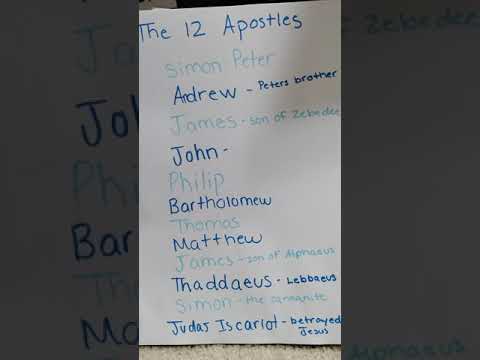 The 12 Apostles
Simon Peter
Andrew - Peters brother
James - son of Zebedee
John -
Philip
Bartholomew
Thomas
Matthew
James - son of Alphaeus
Thaddaeus - Lebbaeus
Simon - the cannanite
Judas Iscariot - betrayed
Jesus